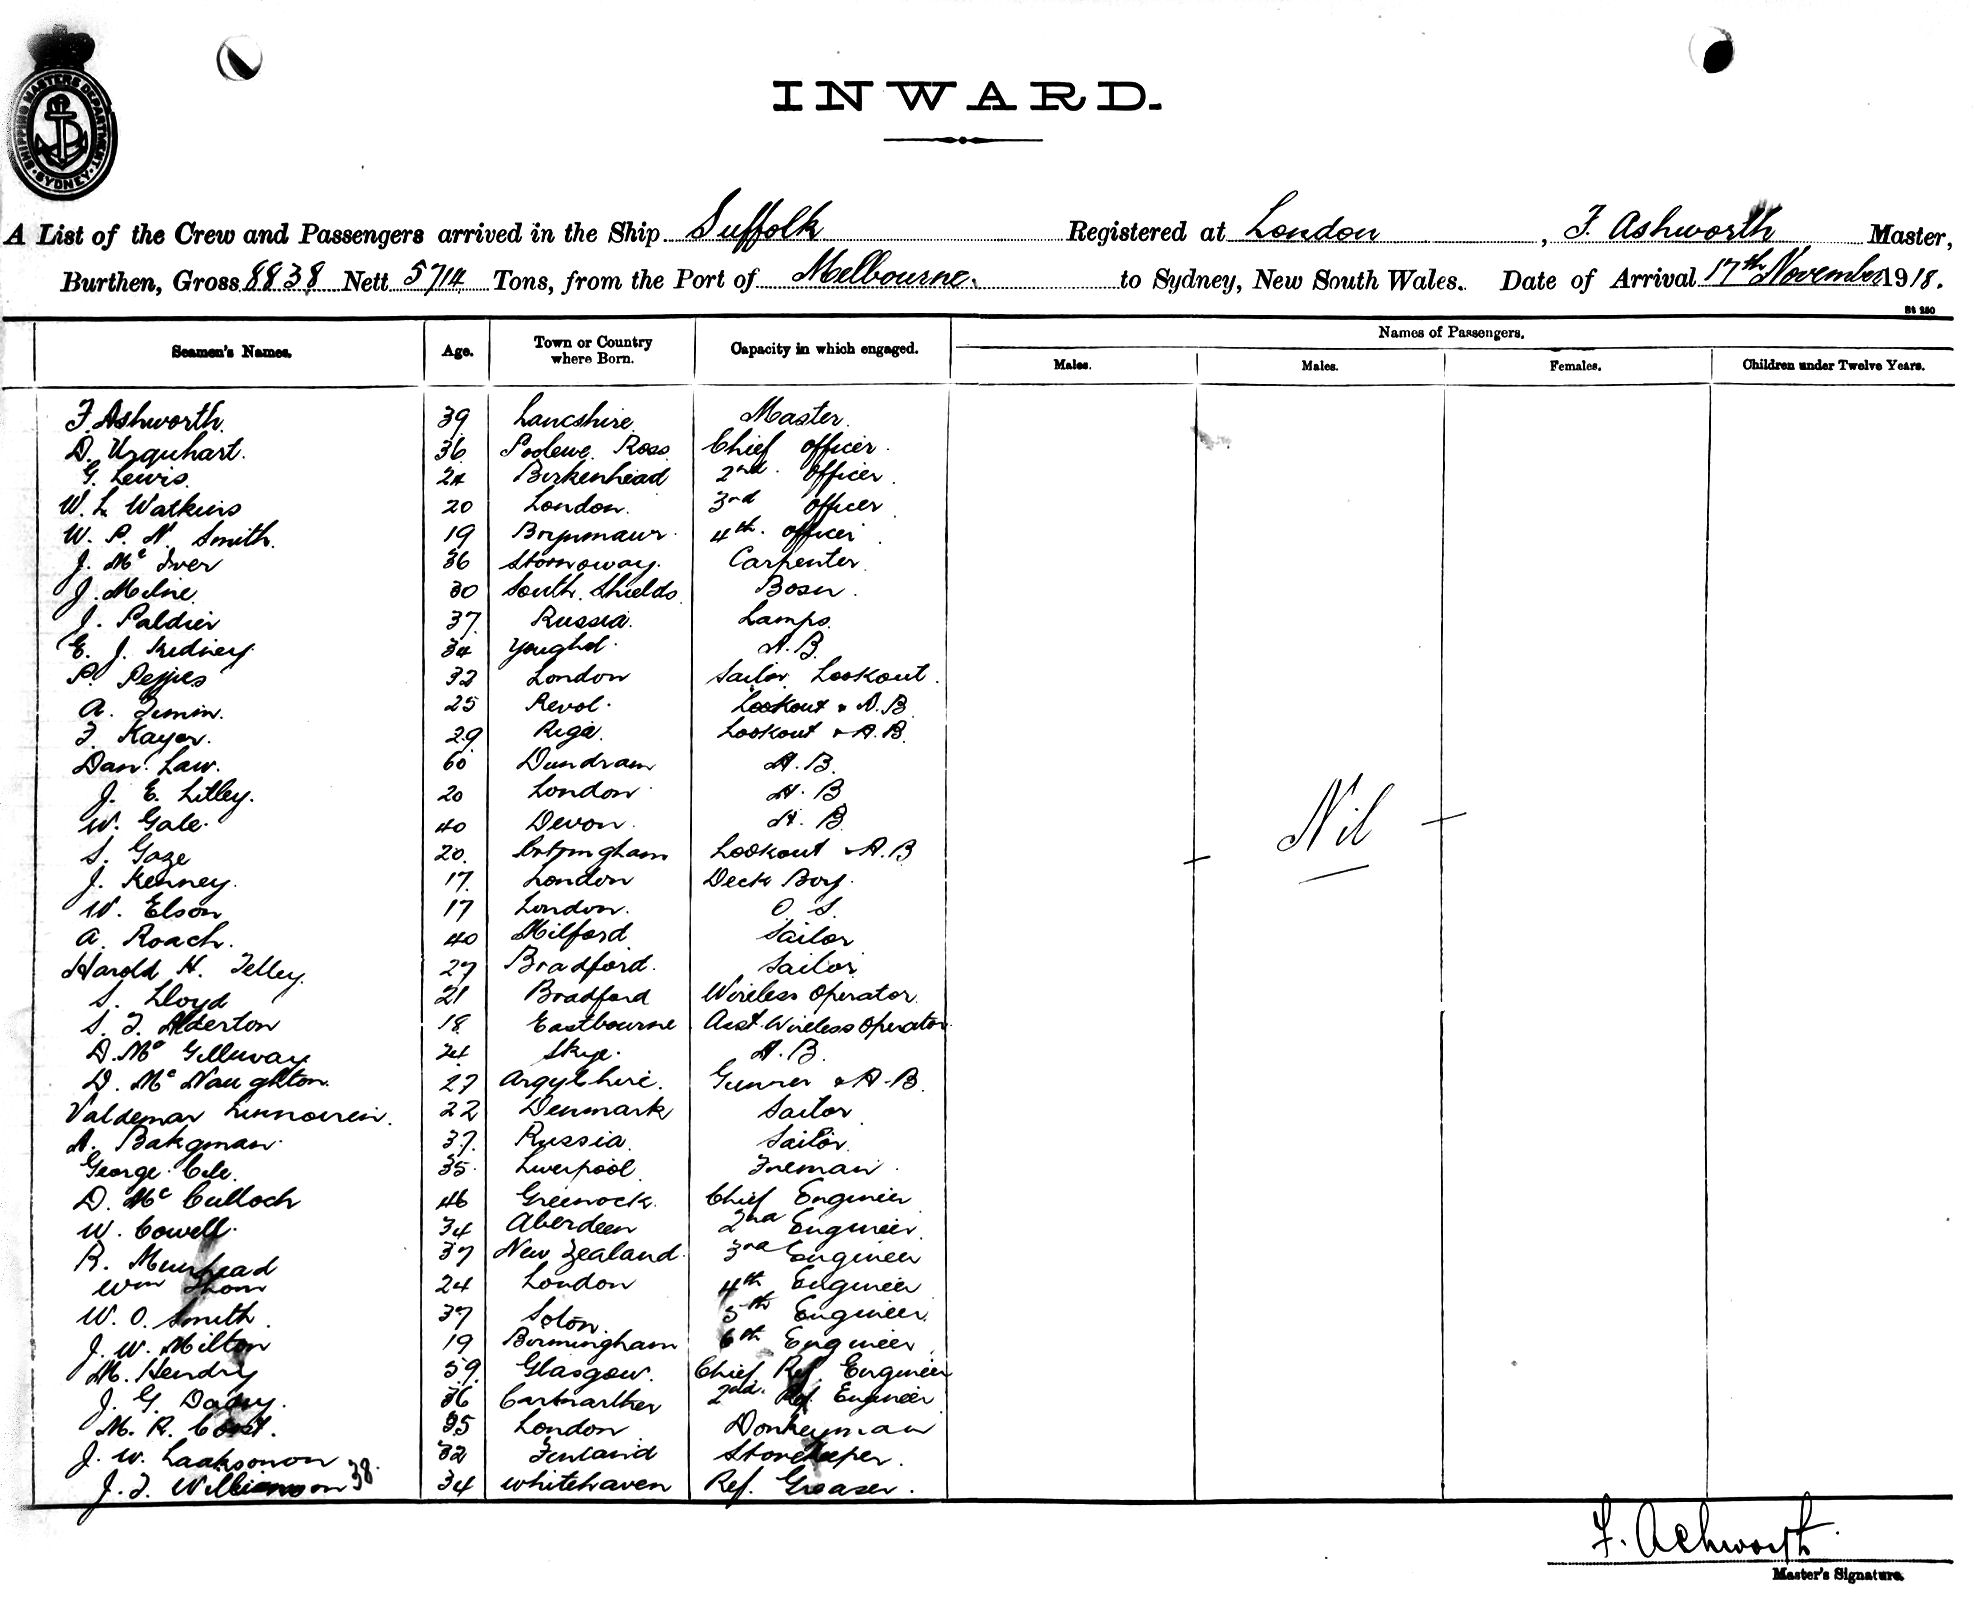 SHIPPING MASTERS DEPARTMENT · SYDNEY ·
INWARD.
A List of the Crew and Passengers arrived in the Ship Suffolk Registered at London, F. Ashworth Master,
Burthen, Gross 8838 Nett 5714 Tons, from the Port of Melbourne. to Sydney, New South Wales. Date of Arrival 17th November 1918.
St 250
Seamen's Names. Age. Town or Country where Born. Capacity in which engaged. Names of Passengers.
Males. Males. Females. Children under Twelve Years.
F. Ashworth. 39 Lancshire. Master.
D. Urquhart. 36 Ross. Chief officer.
G. Lewis. 24 Birkenhead 2nd officer.
W. L. Watkins 20 London. 3rd officer
W. P. N. Smith. 19 Brynmawr. 4th officer
J. Mc Iver 36 Stornoway. Carpenter.
J. Milne. 30 South Shields. Bosn.
J. Paldier 37. Russia. Lamps.
E. J. Kidney. 34 Youghal. A.B.
P. 32 London Sailor Lookout.
A. 25 Revol. Lookout & A.B.
F. Kayor. 29 Riga. Lookout & A.B.
Dan. Law. 60 Dundrum A.B.
J. E. Lilley. 20 London A.B
W. Gale. 40 Devon. A.B.
S. Gaze 20. Lookout & A.B
J. Kenney. 17. London Deck Boy.
W. Elson 17 London. O. S.
A. Roach. 40 Milford Sailor
Harold H. Telley. 27 Bradford. Sailor
S. Lloyd 21 Bradford Wireless Operator.
S. F. Alderton 18 Eastbourne Asst. Wireless Operator
D. Mc Gilluvay 24 Skye. A.B.
D. Mc Naughton. 27 Argylshire. Gunner & A.B.
Valdemar 22 Denmark Sailor
A. Bakgman. 37. Russia. Sailor.
George Cole. 35. Liverpool. Fireman.
D. Mc Culloch 46 Greenock. Chief Engineer
W. Cowell. 34 Aberdeen 2nd Engineer.
R. Muirhead 37 New Zealand. 3rd Engineer
Wm Thom 24 London 4th Engineer
W. O. Smith. 37 Soton. 5th Engineer.
J. W. Milton 19 Birmingham 6th Engineer
M. Hendry 59. Glasgow. Chief Ref. Engineer
J. G. 36 2nd. Ref. Engineer
M. R. 35 London Donkeyman
J. W. Laaksonon 32 Finland Storekeeper.
J. F. Williamson 38. 34 Whitehaven Ref. Greaser.
Nil
F. Ashworth
Master's Signature.